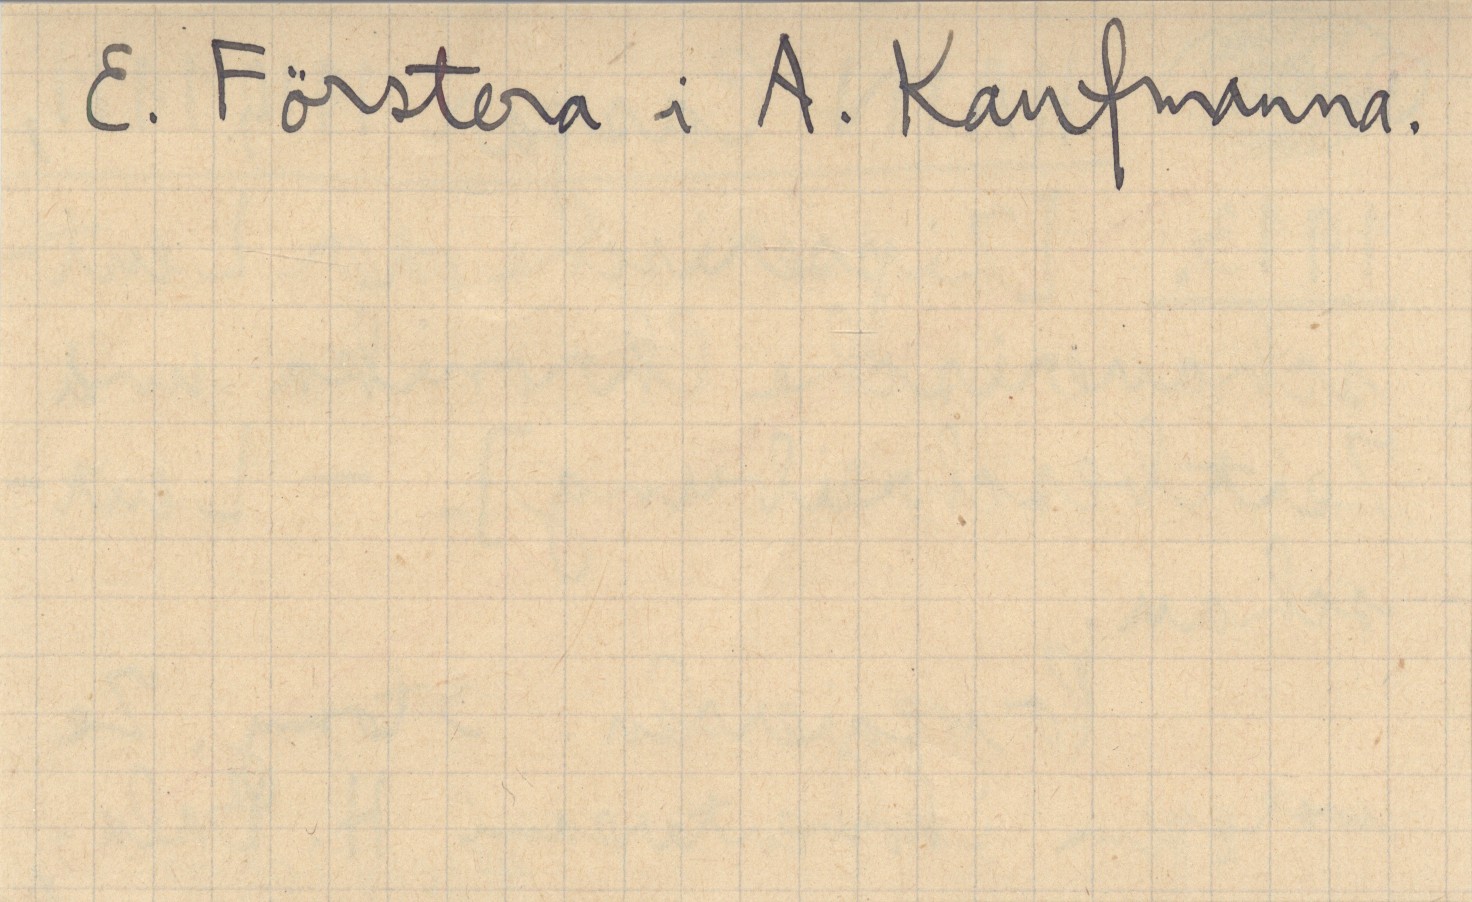 E. Förstera i A. Kaufmanna.